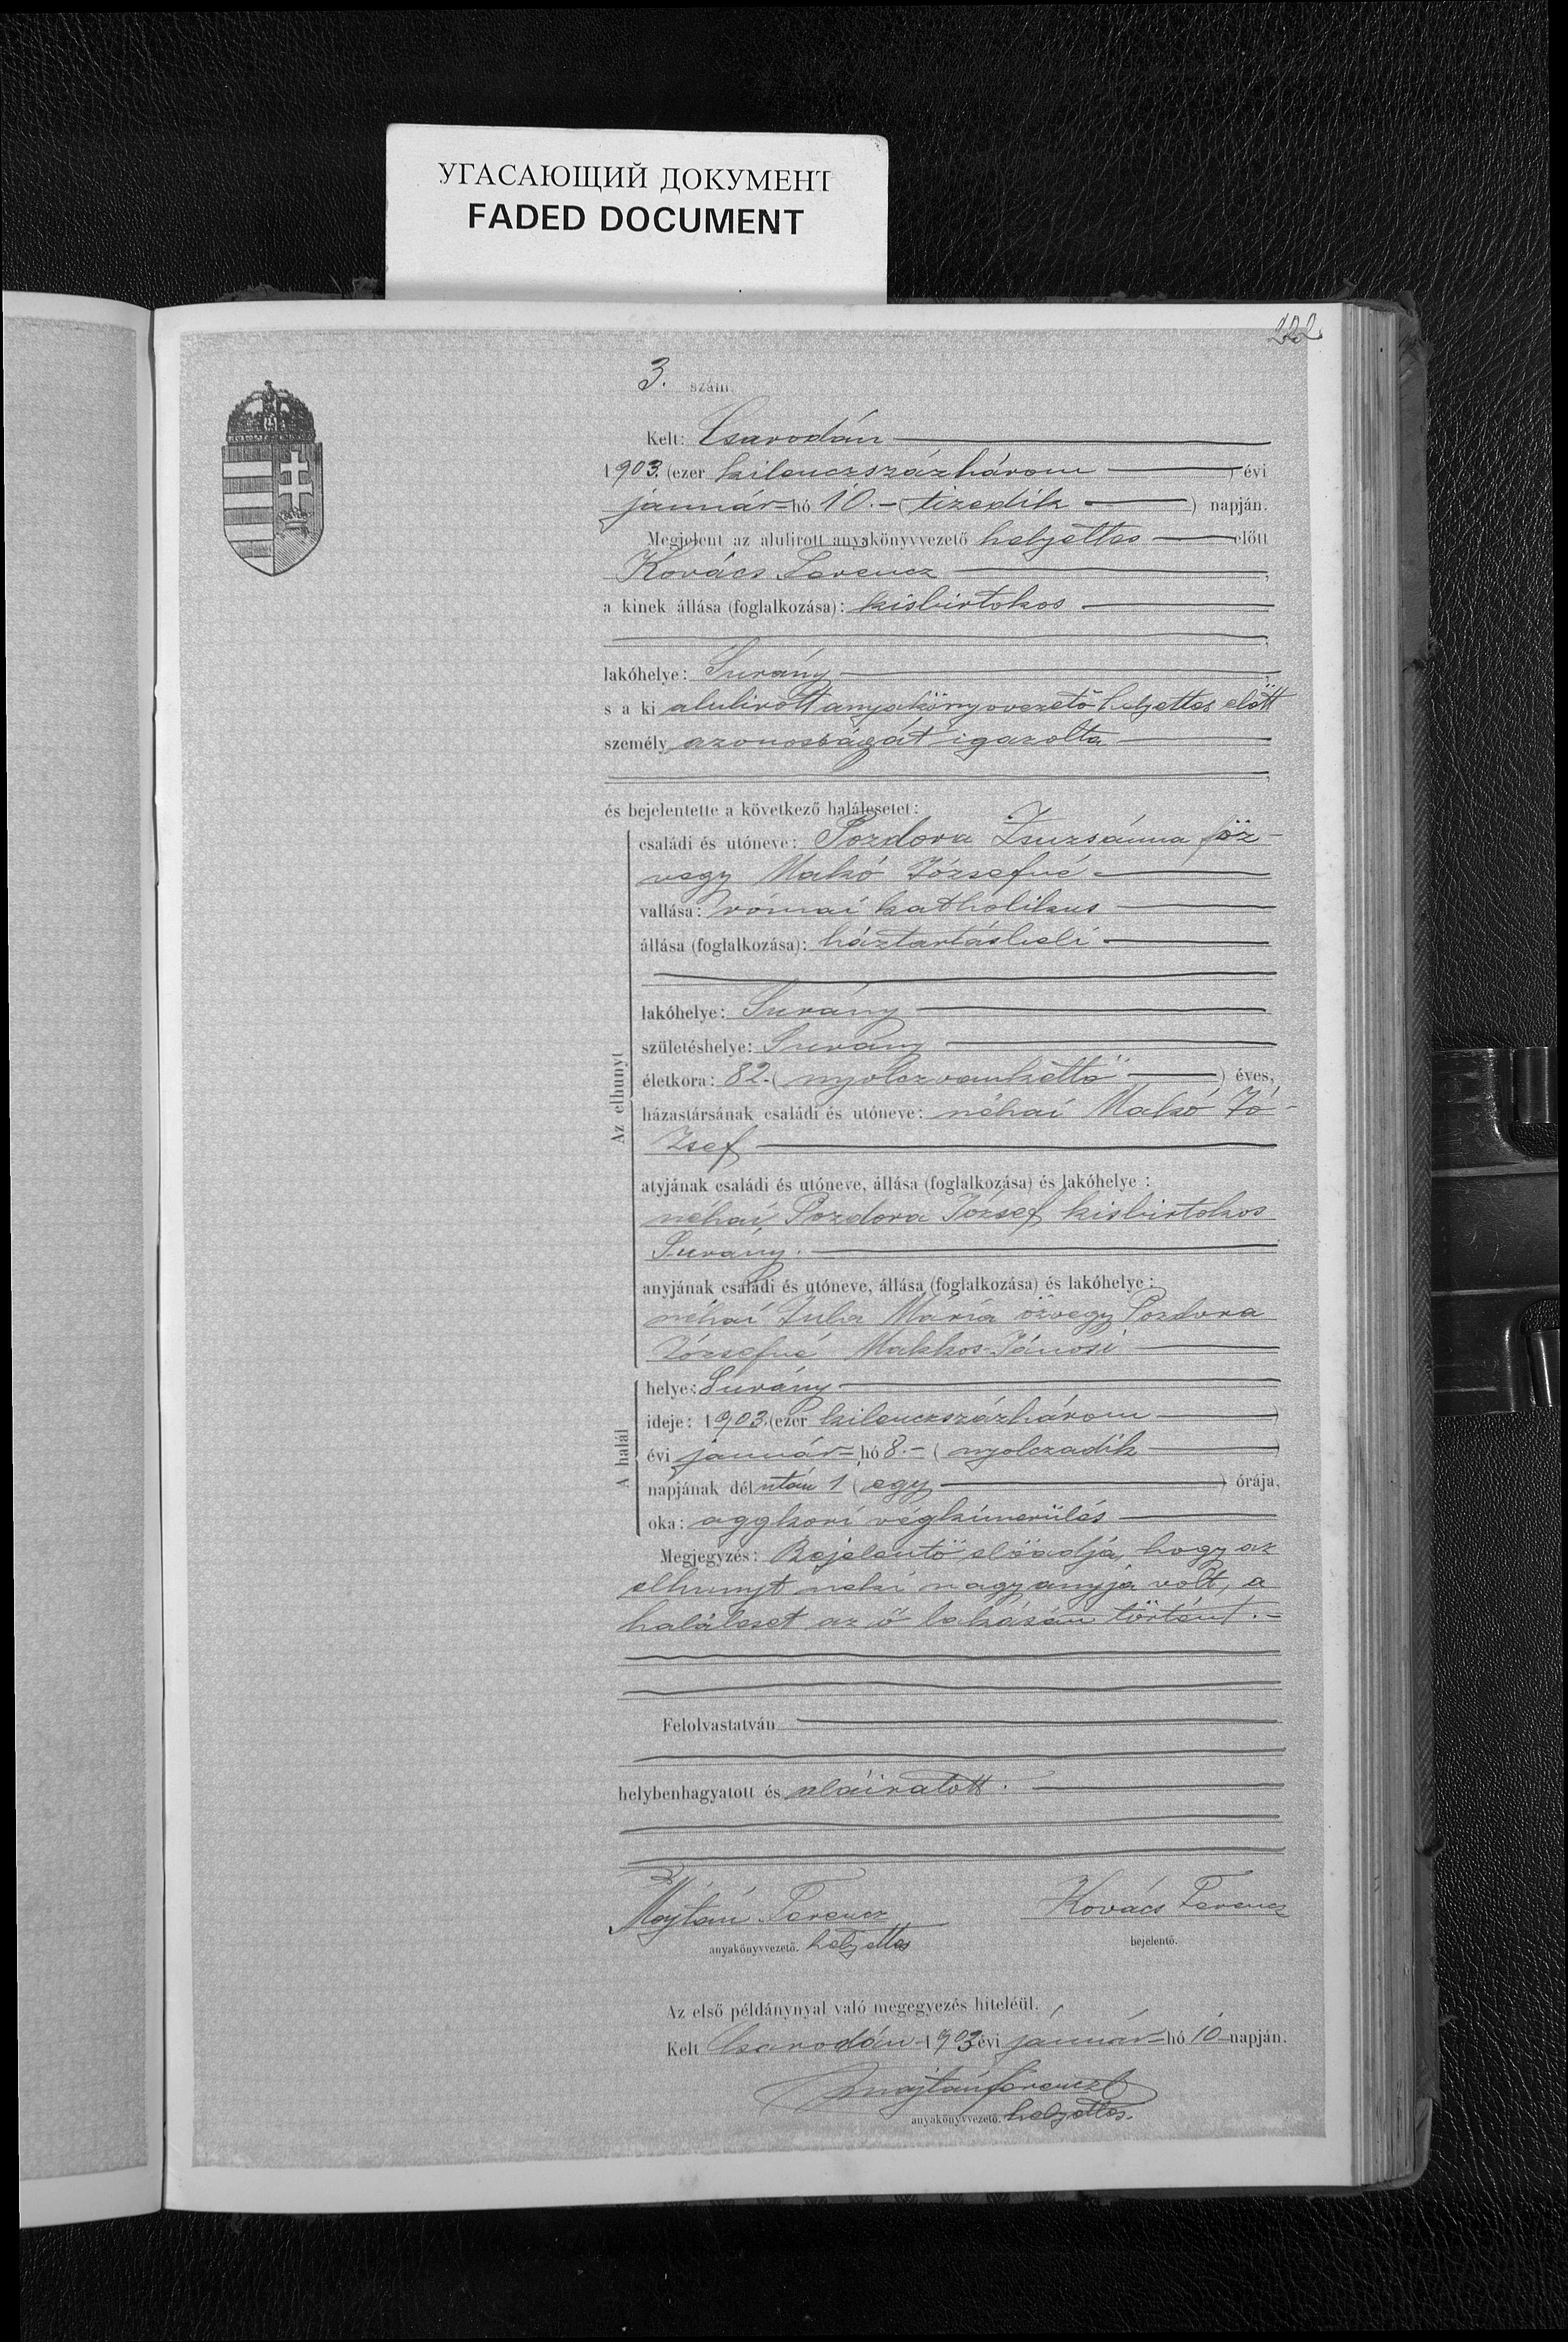 УГАСАЮЩИЙ ДОКУМЕНТ
FADED DOCUMENT
222
3. szám.
Kelt: Csarodán
1903. (ezer kilenczszázhárom ) évi
január hó 10. – ( tizedik ) napján.
Megjelent az alulirott anyakönyvvezető helyettes előtt
Kovács Ferencz ,
a kinek állása (foglalkozása): kisbirtokos
lakóhelye: Surány ,
s a ki alulirott anyakönyvvezető helyettes előtt
személy azonosságát igazolta ,
és bejelentette a következő halálesetet:
Az elhunyt
családi és utóneve: Pozdora Zsuzsánna öz-
vegy Makó Józsefné
vallása: római katholikus
állása (foglalkozása): háztartásbeli
lakóhelye: Surány
születéshelye: Surány
életkora: 82. ( nyolczvankettő ) éves,
házastársának családi és utóneve: néhai Makó Jó-
zsef
atyjának családi és utóneve, állása (foglalkozása) és lakóhelye :
néhai Pozdora József kisbirtokos
Surány.
anyjának családi és utóneve, állása (foglalkozása) és lakóhelye :
néhai Juha Mária özvegy Pozdora
Józsefné Makkos-Jánosi
A halál
helye: Surány
ideje: 1903. (ezer kilenczszázhárom )
évi január hó 8. – ( nyolczadik )
napjának délután 1 ( egy ) órája.
oka: aggkori végkimerülés
Megjegyzés: Bejelentő előadja, hogy az
elhunyt neki nagyanyja volt, a
haláleset az ő lakásán történt. –
Felolvastatván
helybenhagyatott és aláiratott.
Majtáni Ferencz Kovács Ferencz
anyakönyvvezető. helyettes bejelentő.
Az első példánynyal való megegyezés hiteléül.
Kelt Csarodán 1903 évi január hó 10 napján.
Majtáni Ferencz
anyakönyvvezető. helyettes.